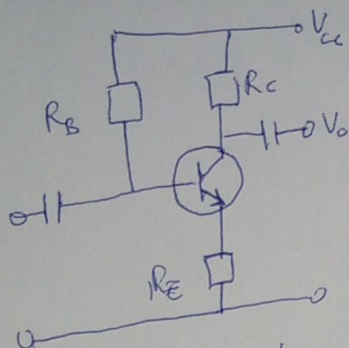 Vcc
RB
RC
Vo
RE